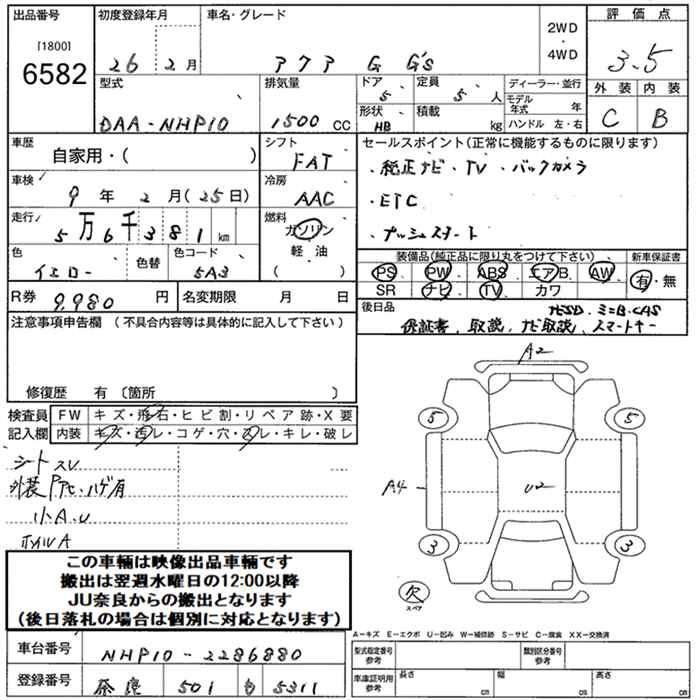 出品番号
[1800]
6582
初度登録年月
26 年 2 月
車名・グレード
アクア G G's
2WD
・
4WD
評価点
3.5
外装 内装
C B
型式
DAA-NHP10
排気量
1500 CC
ドア
5
定員
5 人
形状
HB
積載
kg
ディーラー・並行
モデル年式 年
ハンドル 左・右
車歴
自家用・( )
シフト
FAT
車検
9 年 2 月 (25日)
冷房
AAC
走行
5万6千381 km
燃料
ガソリン
軽油
( )
色
イエロー
色替
色コード
5A3
R券 9,980 円
名変期限 月 日
セールスポイント(正常に機能するものに限ります)
・純正ナビ・TV・バックカメラ
・ETC
・プッシュスタート
装備品(純正品に限り丸をつけて下さい)
新車保証書
PS PW ABS エアB AW
SR ナビ TV カワ
有・無
後日品
ナビSD、ミニB・CAS
保証書、取説、ナビ取説、スマートキー
注意事項申告欄(不具合内容等は具体的に記入して下さい)
修復歴 有〔箇所 〕
検査員記入欄
FW キズ・飛石・ヒビ割・リペア跡・X要
内装 キズ・汚レ・コゲ・穴・スレ・キレ・破レ
シートスレ
小A.U
ホイルA
A2
5 5
A4
U2
3 3
欠
スペア
この車輛は映像出品車輛です
搬出は翌週水曜日の12:00以降
JU奈良からの搬出となります
(後日落札の場合は個別に対応となります)
A-キズ E-エクボ U-凹み W-補修跡 S-サビ C-腐食 XX-交換済
車台番号
NHP10-2286880
登録番号
奈良 501 も 5311
型式指定番号 参考
類別区分番号 参考
車庫証明用 参考
長さ cm
幅 cm
高さ cm